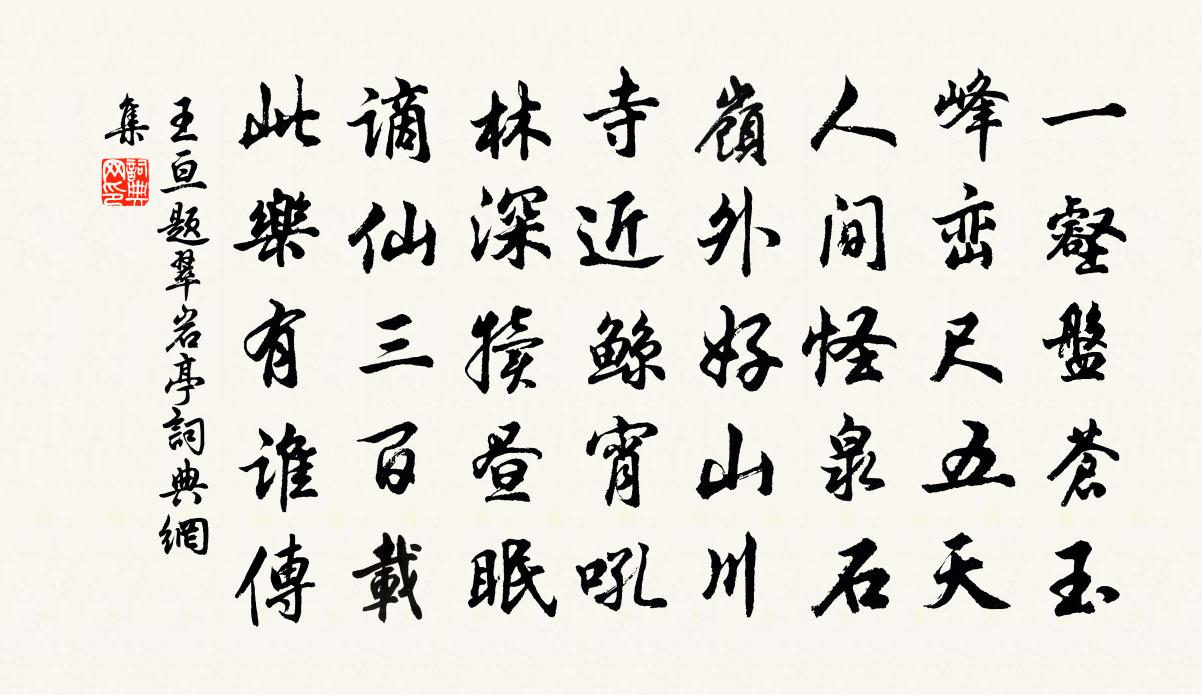 一壑盤蒼玉
峰巒尺五天
人間怪泉石
嶺外好山川
寺近鯨宵吼
林深犢晝眠
謫仙三百載
此樂有誰傳
王亘題翠岩亭詞典網
集
詞典
网印